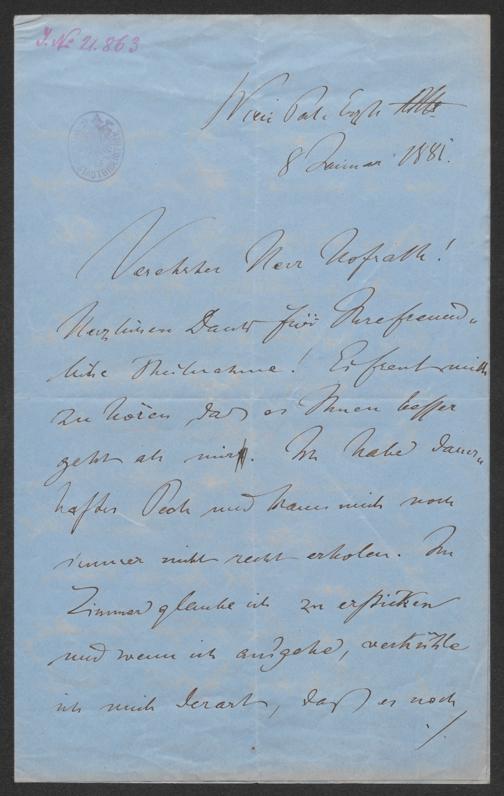 J. No 21.863
Wien
8 Januar 1881.
Verehrter Herr Hofrath!
Herzlichen Dank für Ihre freund„
liche Theilnahme! Es freut mich
zu hören daß es Ihnen besser
geht als mir. Ich habe dauer„
haftes Pech und kann mich noch
immer nicht recht erholen. Im
Zimmer glaube ich zu ersticken
und wenn ich ausgehe, verkühle
ich mich derart, daß es noch
./.